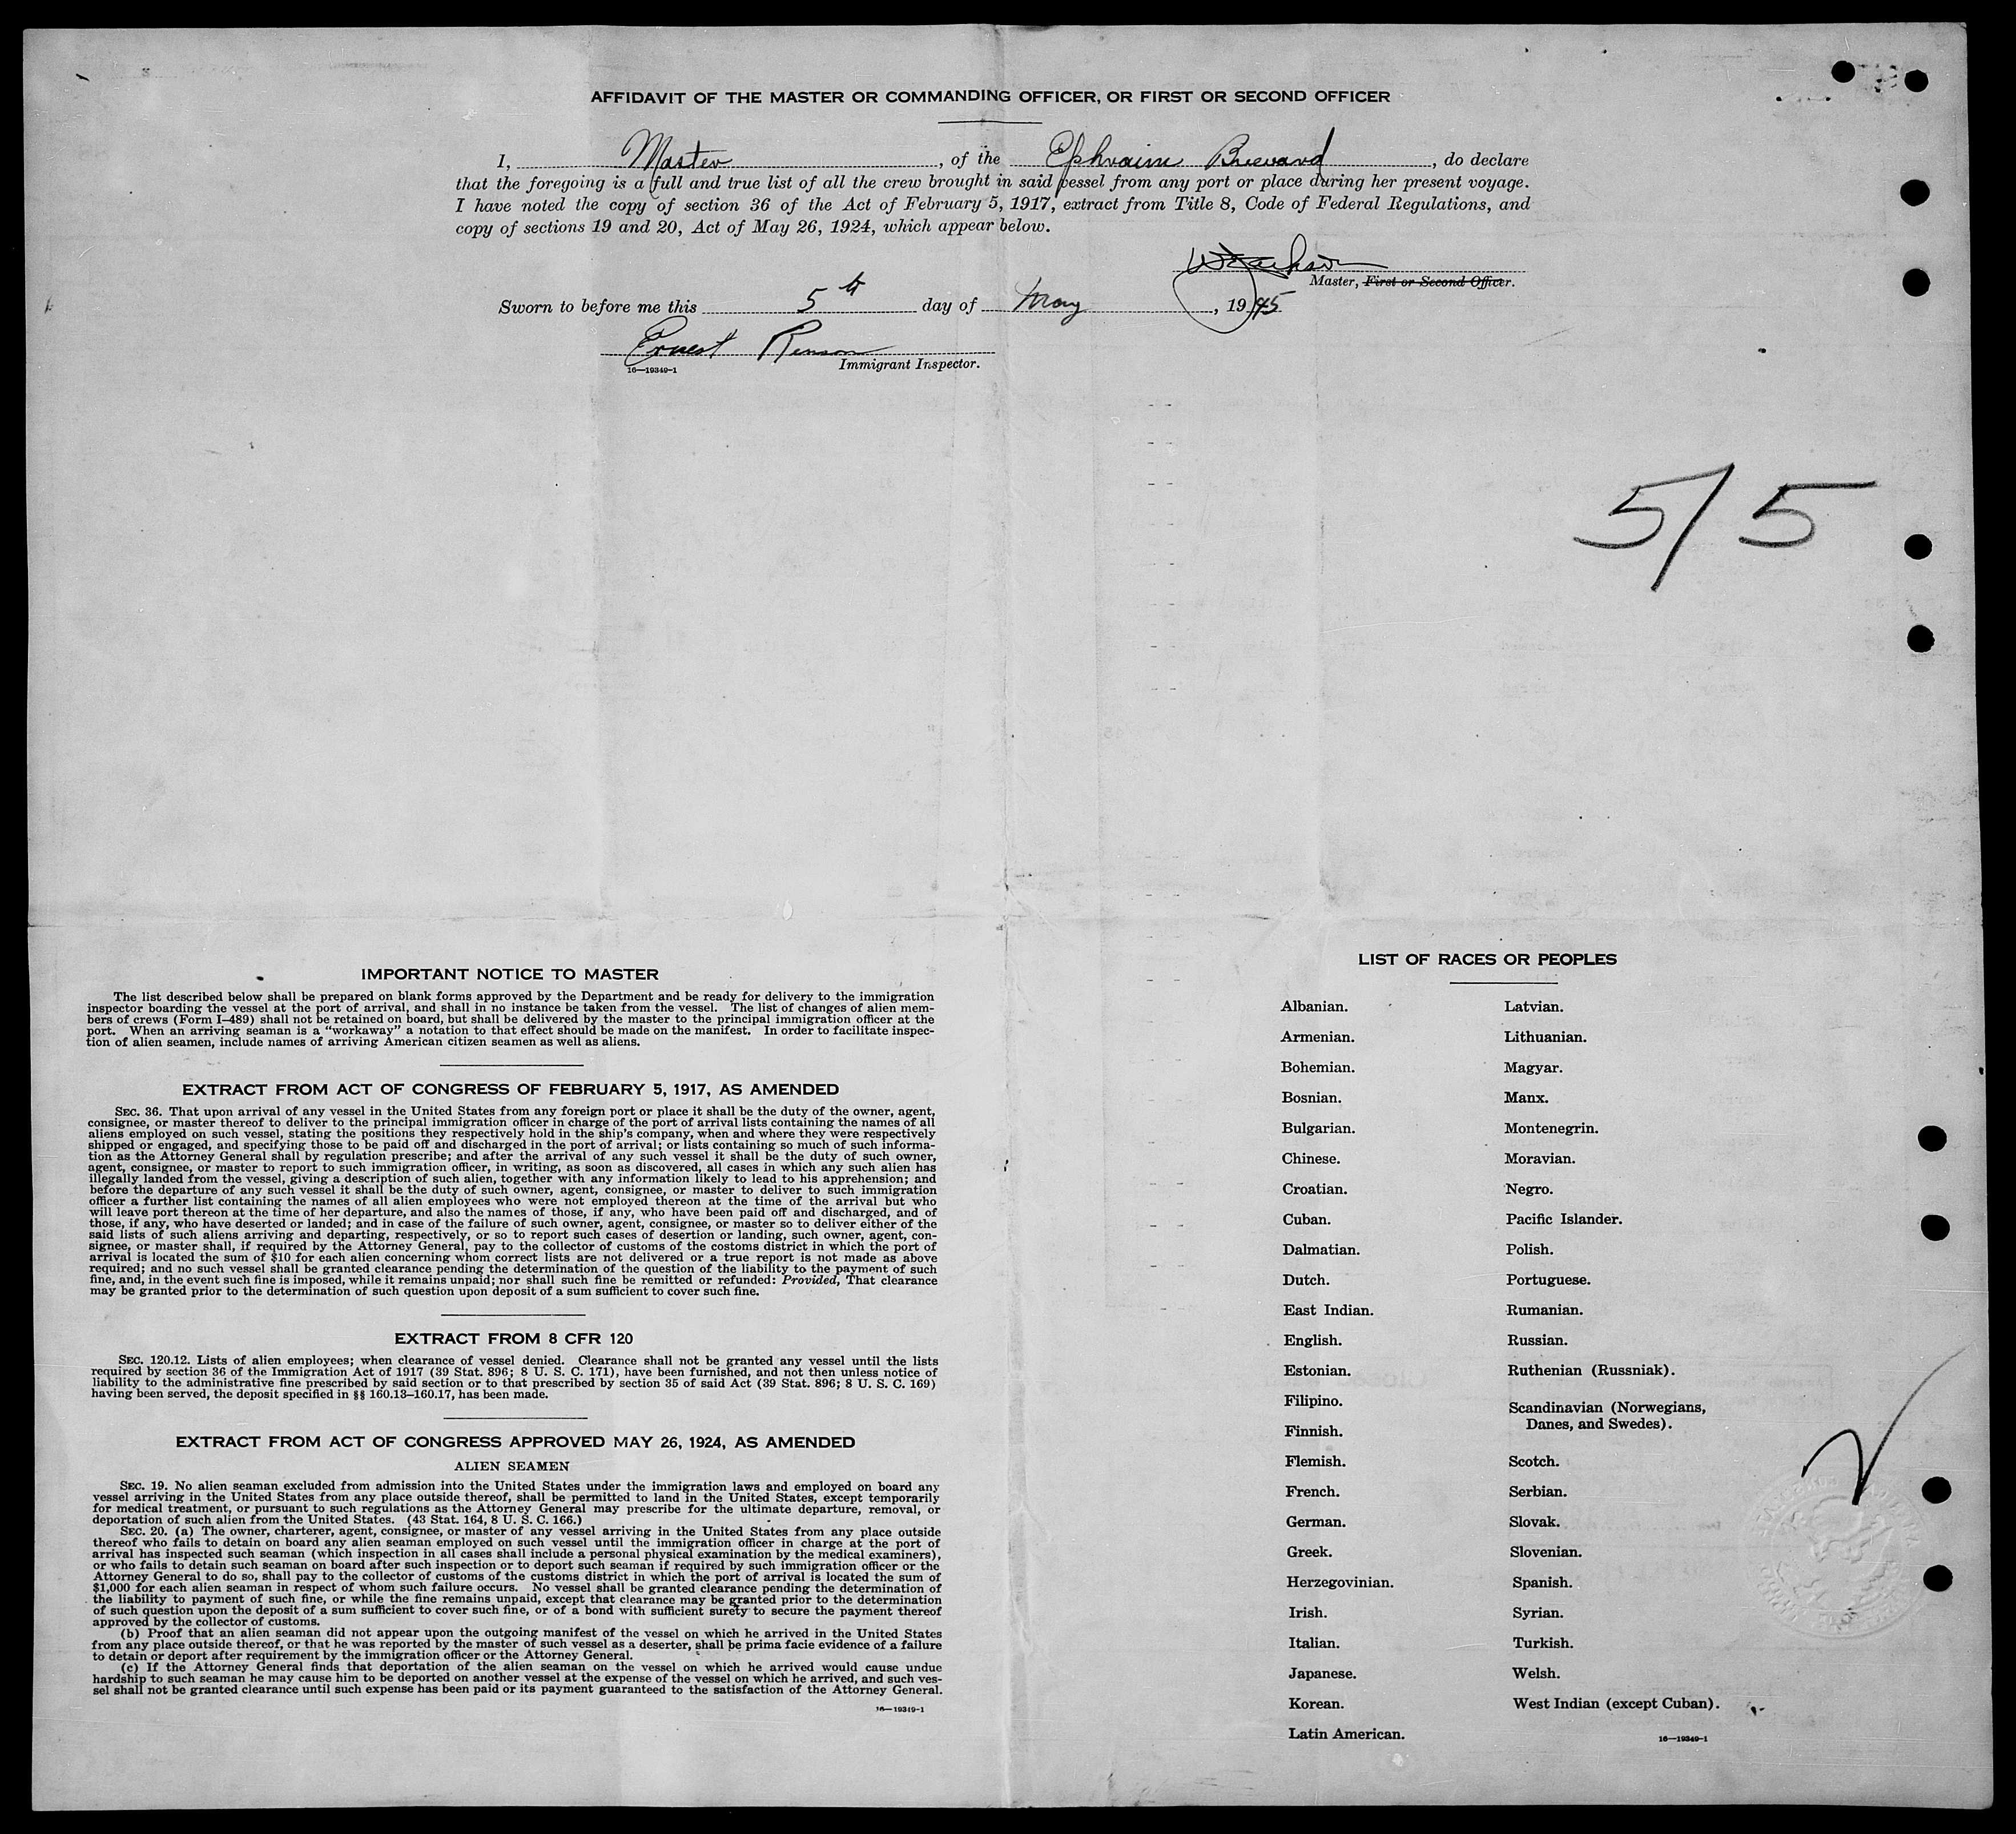 AFFIDAVIT OF THE MASTER OR COMMANDING OFFICER, OR FIRST OR SECOND OFFICER
I, Master, of the Ephraim Brevard, do declare
that the foregoing is a full and true list of all the crew brought in said vessel from any port or place during her present voyage.
I have noted the copy of section 36 of the Act of February 5, 1917, extract from Title 8, Code of Federal Regulations, and
copy of sections 19 and 20, Act of May 26, 1924, which appear below.
Jackson
Master, First or Second Officer.
Sworn to before me this 5th day of May, 1945
Ernest
16—19349-1 Immigrant Inspector.
5/5
IMPORTANT NOTICE TO MASTER
The list described below shall be prepared on blank forms approved by the Department and be ready for delivery to the immigration
inspector boarding the vessel at the port of arrival, and shall in no instance be taken from the vessel. The list of changes of alien mem-
bers of crews (Form I-489) shall not be retained on board, but shall be delivered by the master to the principal immigration officer at the
port. When an arriving seaman is a "workaway" a notation to that effect should be made on the manifest. In order to facilitate inspec-
tion of alien seamen, include names of arriving American citizen seamen as well as aliens.
EXTRACT FROM ACT OF CONGRESS OF FEBRUARY 5, 1917, AS AMENDED
SEC. 36. That upon arrival of any vessel in the United States from any foreign port or place it shall be the duty of the owner, agent,
consignee, or master thereof to deliver to the principal immigration officer in charge of the port of arrival lists containing the names of all
aliens employed on such vessel, stating the positions they respectively hold in the ship's company, when and where they were respectively
shipped or engaged, and specifying those to be paid off and discharged in the port of arrival; or lists containing so much of such informa-
tion as the Attorney General shall by regulation prescribe; and after the arrival of any such vessel it shall be the duty of such owner,
agent, consignee, or master to report to such immigration officer, in writing, as soon as discovered, all cases in which any such alien has
illegally landed from the vessel, giving a description of such alien, together with any information likely to lead to his apprehension; and
before the departure of any such vessel it shall be the duty of such owner, agent, consignee, or master to deliver to such immigration
officer a further list containing the names of all alien employees who were not employed thereon at the time of the arrival but who
will leave port thereon at the time of her departure, and also the names of those, if any, who have been paid off and discharged, and of
those, if any, who have deserted or landed; and in case of the failure of such owner, agent, consignee, or master so to deliver either of the
said lists of such aliens arriving and departing, respectively, or so to report such cases of desertion or landing, such owner, agent, con-
signee, or master shall, if required by the Attorney General, pay to the collector of customs of the costoms district in which the port of
arrival is located the sum of $10 for each alien concerning whom correct lists are not delivered or a true report is not made as above
required; and no such vessel shall be granted clearance pending the determination of the question of the liability to the payment of such
fine, and, in the event such fine is imposed, while it remains unpaid; nor shall such fine be remitted or refunded: Provided, That clearance
may be granted prior to the determination of such question upon deposit of a sum sufficient to cover such fine.
EXTRACT FROM 8 CFR 120
SEC. 120.12. Lists of alien employees; when clearance of vessel denied. Clearance shall not be granted any vessel until the lists
required by section 36 of the Immigration Act of 1917 (39 Stat. 896; 8 U. S. C. 171), have been furnished, and not then unless notice of
liability to the administrative fine prescribed by said section or to that prescribed by section 35 of said Act (39 Stat. 896; 8 U. S. C. 169)
having been served, the deposit specified in §§ 160.13–160.17, has been made.
EXTRACT FROM ACT OF CONGRESS APPROVED MAY 26, 1924, AS AMENDED
ALIEN SEAMEN
SEC. 19. No alien seaman excluded from admission into the United States under the immigration laws and employed on board any
vessel arriving in the United States from any place outside thereof, shall be permitted to land in the United States, except temporarily
for medical treatment, or pursuant to such regulations as the Attorney General may prescribe for the ultimate departure, removal, or
deportation of such alien from the United States. (43 Stat. 164, 8 U. S. C. 166.)
SEC. 20. (a) The owner, charterer, agent, consignee, or master of any vessel arriving in the United States from any place outside
thereof who fails to detain on board any alien seaman employed on such vessel until the immigration officer in charge at the port of
arrival has inspected such seaman (which inspection in all cases shall include a personal physical examination by the medical examiners),
or who fails to detain such seaman on board after such inspection or to deport such seaman if required by such immigration officer or the
Attorney General to do so, shall pay to the collector of customs of the customs district in which the port of arrival is located the sum of
$1,000 for each alien seaman in respect of whom such failure occurs. No vessel shall be granted clearance pending the determination of
the liability to payment of such fine, or while the fine remains unpaid, except that clearance may be granted prior to the determination
of such question upon the deposit of a sum sufficient to cover such fine, or of a bond with sufficient surety to secure the payment thereof
approved by the collector of customs.
(b) Proof that an alien seaman did not appear upon the outgoing manifest of the vessel on which he arrived in the United States
from any place outside thereof, or that he was reported by the master of such vessel as a deserter, shall be prima facie evidence of a failure
to detain or deport after requirement by the immigration officer or the Attorney General.
(c) If the Attorney General finds that deportation of the alien seaman on the vessel on which he arrived would cause undue
hardship to such seaman he may cause him to be deported on another vessel at the expense of the vessel on which he arrived, and such ves-
sel shall not be granted clearance until such expense has been paid or its payment guaranteed to the satisfaction of the Attorney General.
16—19349-1
LIST OF RACES OR PEOPLES
Albanian.
Armenian.
Bohemian.
Bosnian.
Bulgarian.
Chinese.
Croatian.
Cuban.
Dalmatian.
Dutch.
East Indian.
English.
Estonian.
Filipino.
Finnish.
Flemish.
French.
German.
Greek.
Herzegovinian.
Irish.
Italian.
Japanese.
Korean.
Latin American.
Latvian.
Lithuanian.
Magyar.
Manx.
Montenegrin.
Moravian.
Negro.
Pacific Islander.
Polish.
Portuguese.
Rumanian.
Russian.
Ruthenian (Russniak).
Scandinavian (Norwegians,
Danes, and Swedes).
Scotch.
Serbian.
Slovak.
Slovenian.
Spanish.
Syrian.
Turkish.
Welsh.
West Indian (except Cuban).
16—19349-1